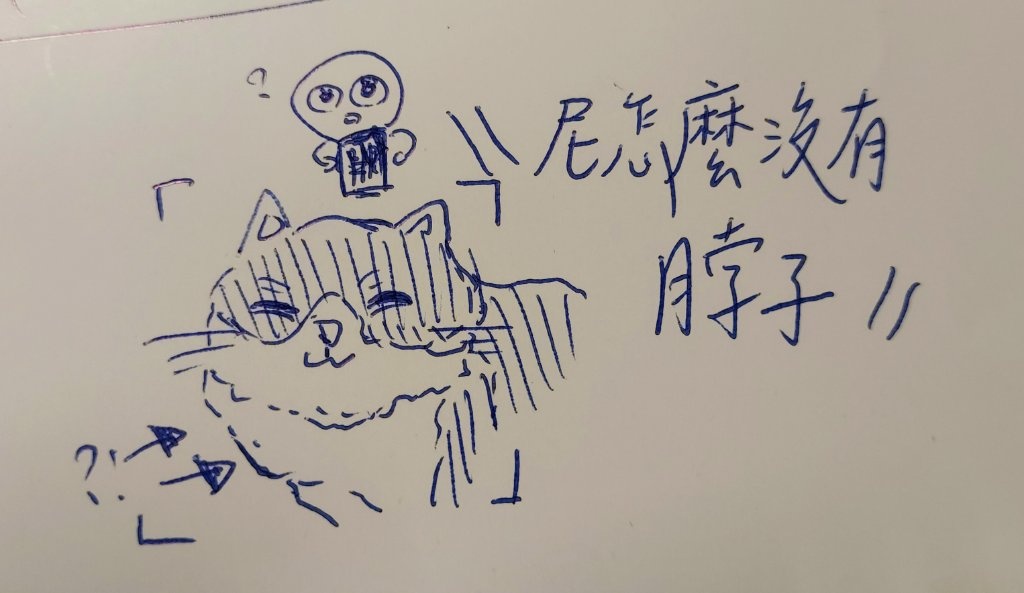 ?
\\ 尼怎麼沒有
脖子 //
?!